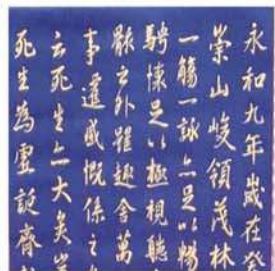 永和九年歲在癸
崇山峻領茂林
一觴一詠亦足以暢
騁懷足以極視聽
骸之外雖趣舍萬
事遷感慨係之
云死生亦大矣豈
死生為虛誕齊